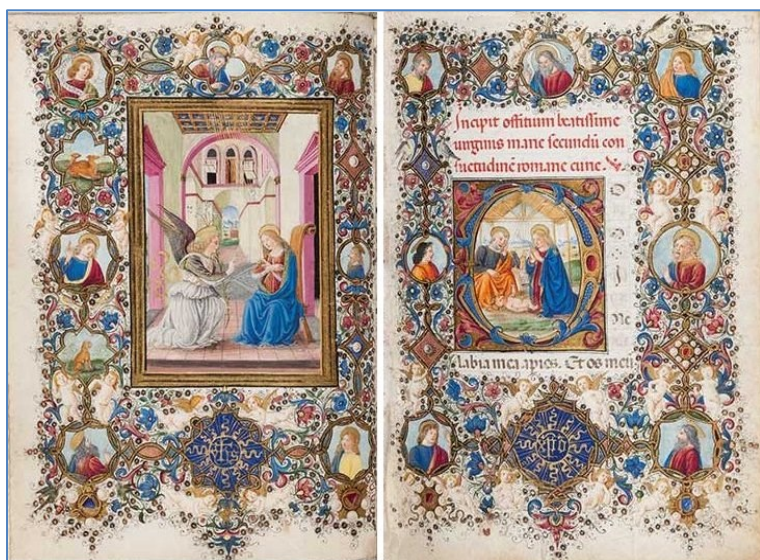 yhs
Incipit offitium beatissime
virginis marie secundũ con
suetudinẽ romane curie.
D
Ne
labia mea aperies. Et os meũ